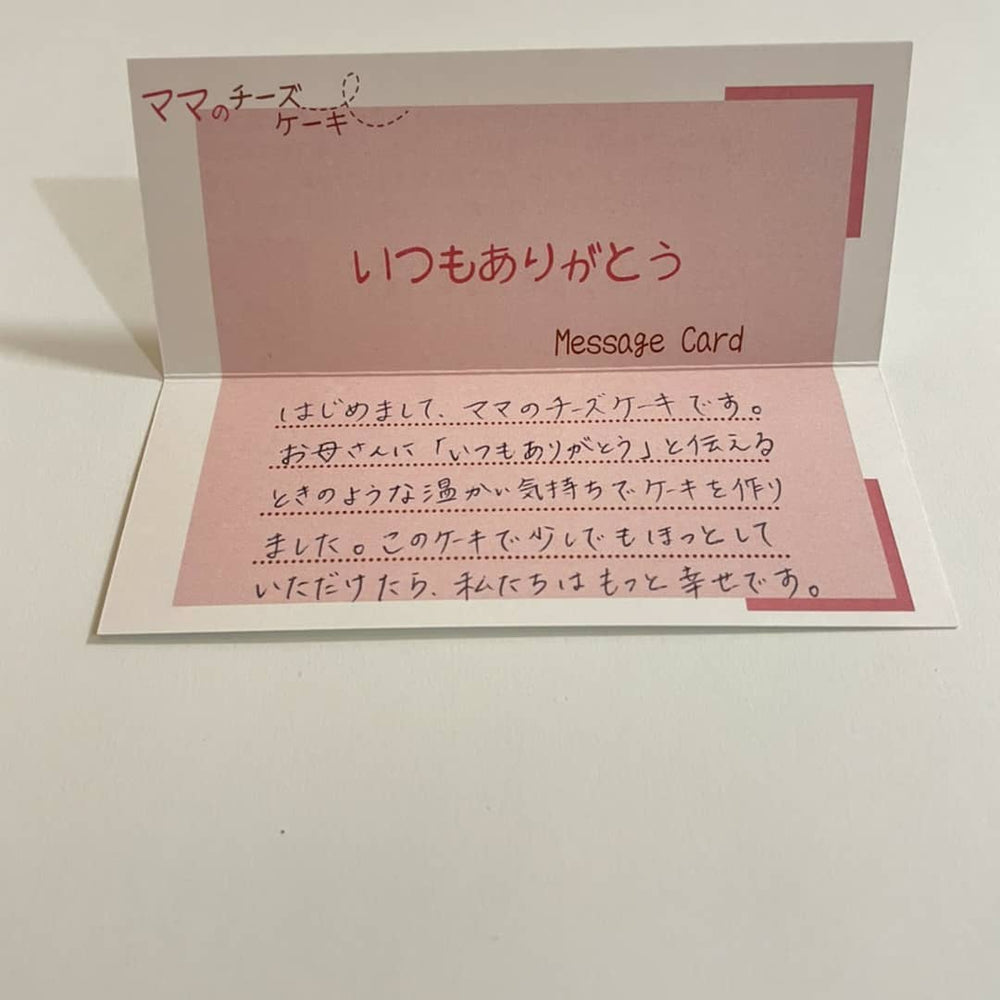 ママのチーズ
ケーキ
いつもありがとう
Message Card
はじめまして、ママのチーズケーキです。
お母さんに「いつもありがとう」と伝える
ときのような温かい気持ちでケーキを作り
ました。このケーキで少しでもほっとして
いただけたら、私たちはもっと幸せです。